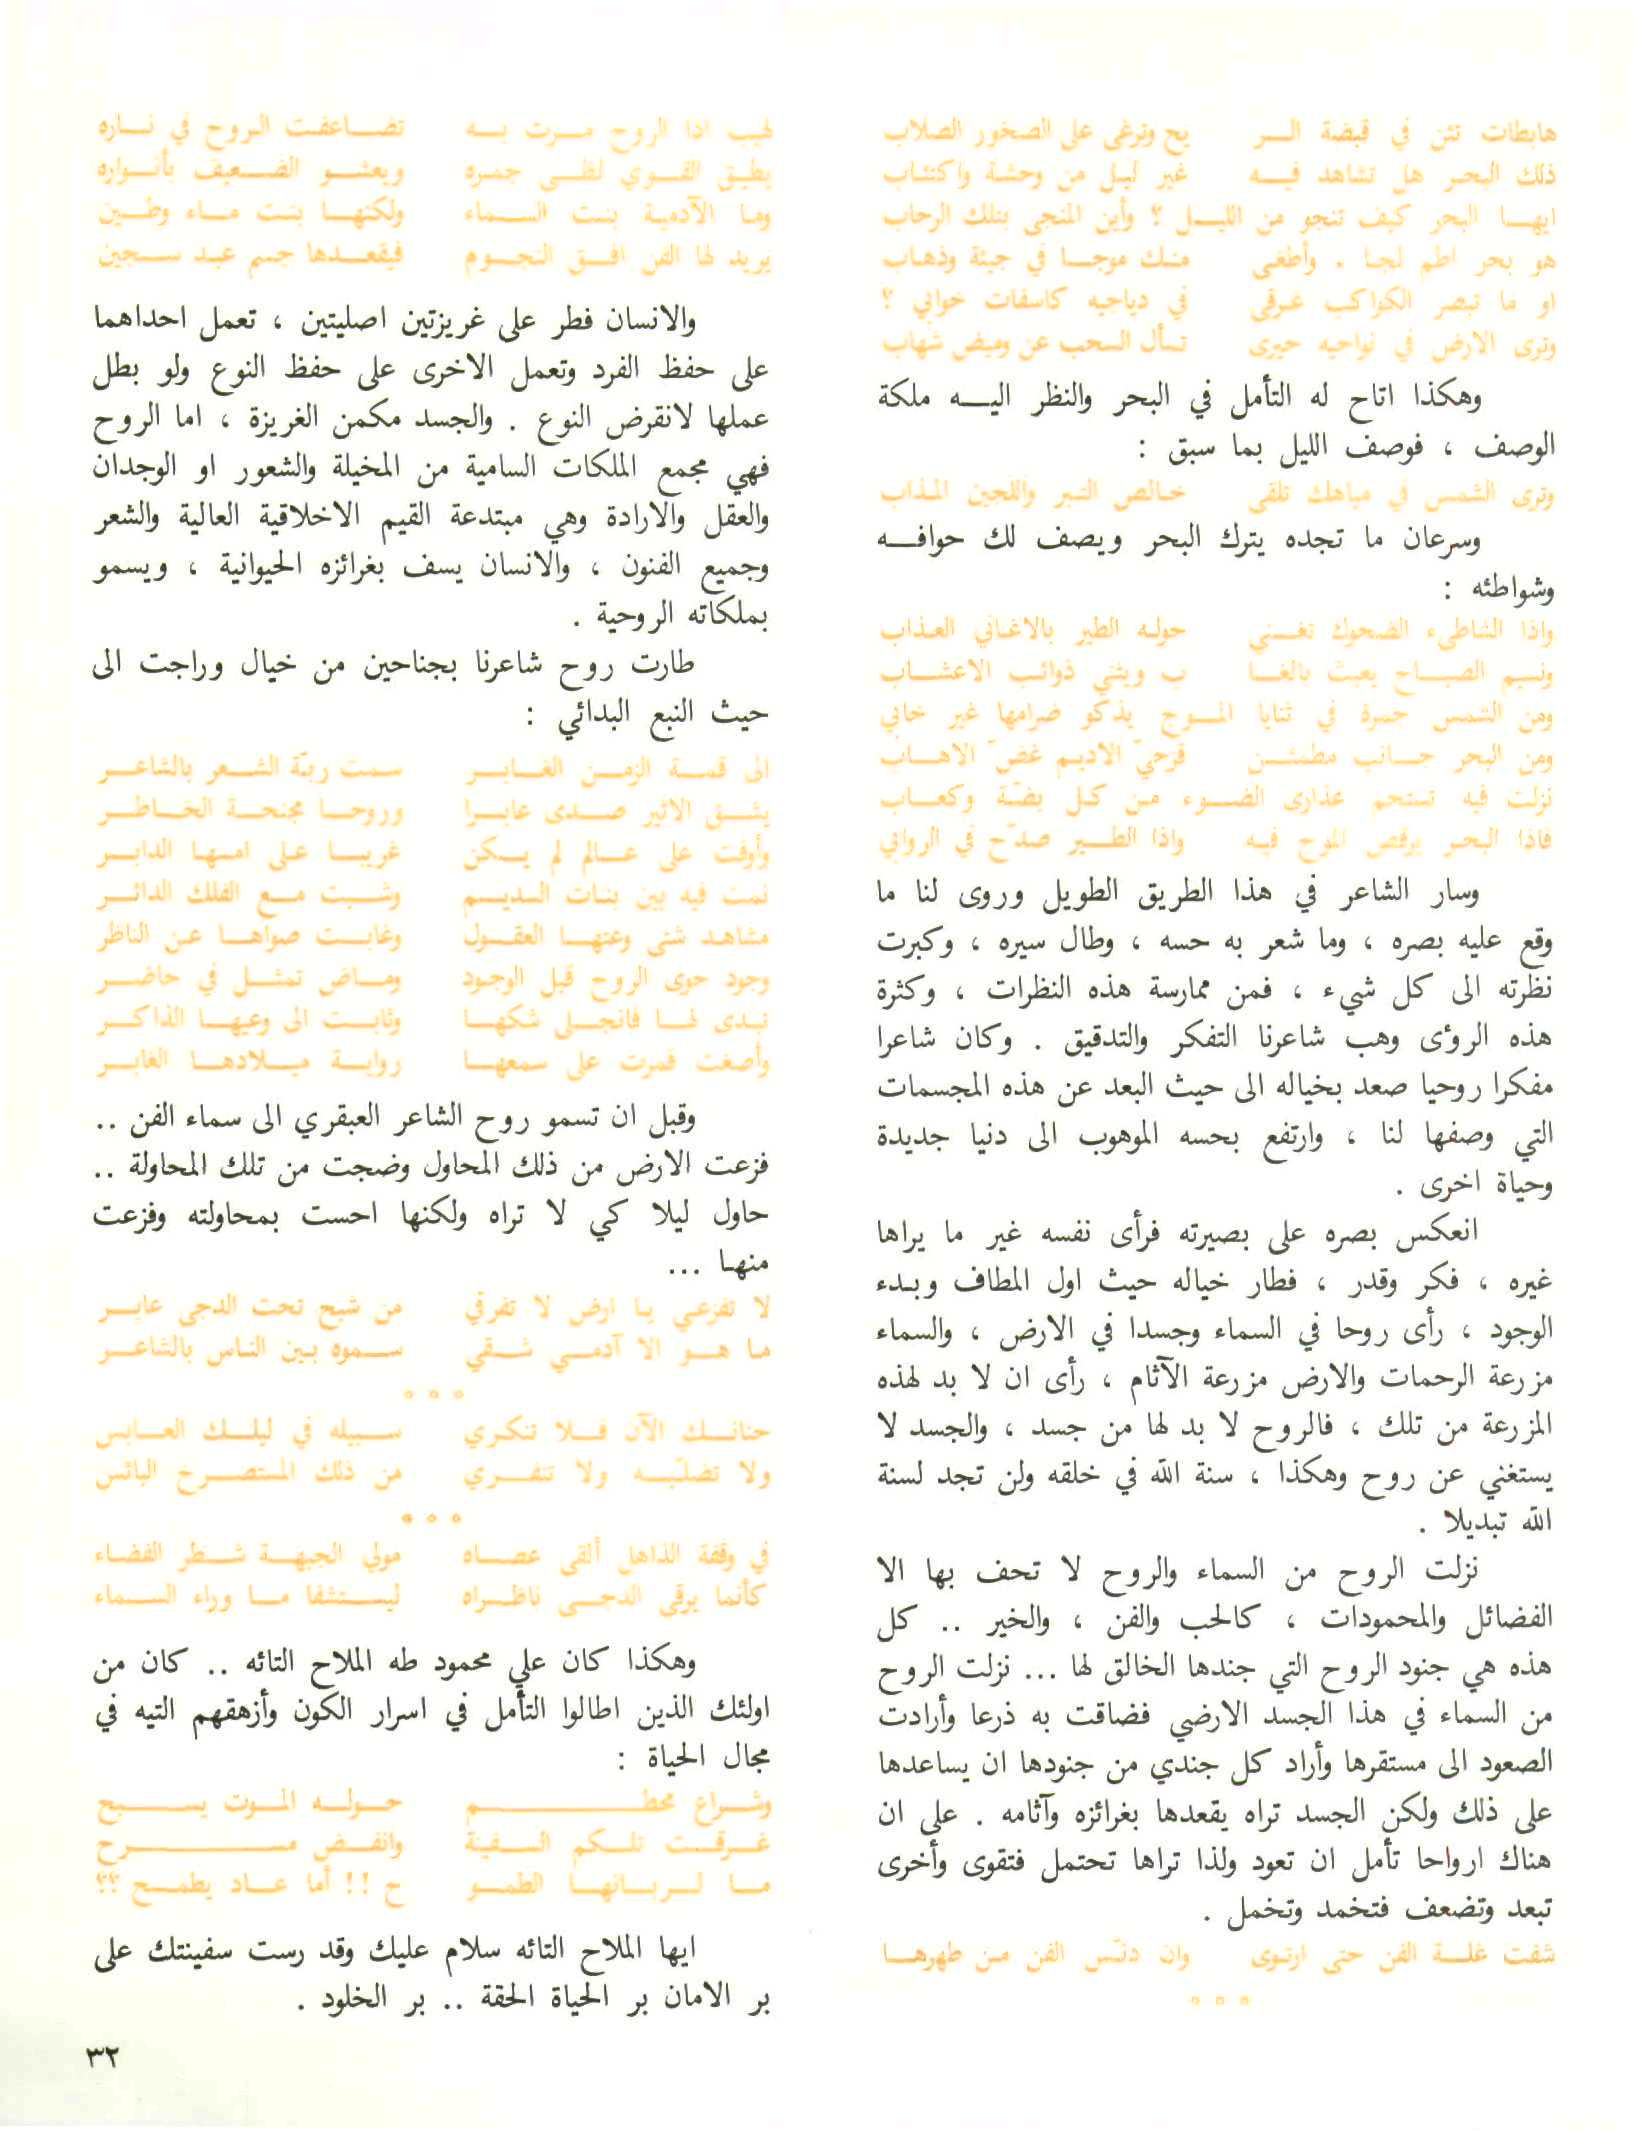 هابطات تئن في قبضة الـــر يح وترغي على الصخور الصلاب
ذلك البحـر هل تشاهد فيــه غير ليـل من وحشة واكتئاب
ايهـا البحر كيف تنجو من الليـل ؟ وأين المنجى بتلك الرحاب
هو بحر اطم لجـا . وأطغـى منـك موجـا في جيئة وذهـاب
او ما تبصر الكواكب غـرقى في دياجيه كاسفات خوابي ؟
وترى الارض في نواحيه حيرى تسأل السحب عن وميض شهاب
وهكذا اتاح له التأمل في البحر والنظر اليـه ملكة
الوصف ، فوصف الليل بما سبق :
وترى الشمس في مياهك تلقى خـالص التـبر واللجين المـذاب
وسرعان ما تجده يترك البحر ويصف لك حوافـه
وشواطئه :
واذا الشاطىء الضحوك تغـني حوله الطير بالاغاني العـذاب
ونسيم الصبـاح يعبث بالغـا ب ويثني ذوائب الاعشـاب
ومن الشمس جمرة في ثنايا المـوج يذكو ضرامها غير خابي
ومن البحر جـانب مطمئـن قزحيّ الاديم غضّ الاهـاب
نزلت فيه تستحم عذارى الضـوء من كـل بضّة وكعـاب
فاذا البحـر يرقص الموج فيـه واذا الطـير صدّح في الروابي
وسار الشاعر في هذا الطريق الطويل وروى لنا ما
وقع عليه بصره ، وما شعر به حسه ، وطال سيره ، وكبرت
نظرته الى كل شيء ، فمن ممارسة هذه النظرات ، وكثرة
هذه الرؤى وهب شاعرنا التفكر والتدقيق . وكان شاعرا
مفكرا روحيا صعد بخياله الى حيث البعد عن هذه المجسمات
التي وصفها لنا ، وارتفع بحسه الموهوب الى دنيا جديدة
وحياة اخرى .
انعكس بصره على بصيرته فرأى نفسه غير ما يراها
غيره ، فكر وقدر ، فطار خياله حيث اول المطاف وبـدء
الوجود ، رأى روحا في السماء وجسدا في الارض ، والسماء
مزرعة الرحمات والارض مزرعة الآثام ، رأى ان لا بد لهذه
المزرعة من تلك ، فالروح لا بد لها من جسد ، والجسد لا
يستغني عن روح وهكذا ، سنة الله في خلقه ولن تجد لسنة
الله تبديلا .
نزلت الروح من السماء والروح لا تحف بها الا
الفضائل والمحمودات ، كالحب والفن ، والخير .. كل
هذه هي جنود الروح التي جندها الخالق لها ... نزلت الروح
من السماء في هذا الجسد الارضي فضاقت به ذرعا وأرادت
الصعود الى مستقرها وأراد كل جندي من جنودها ان يساعدها
على ذلك ولكن الجسد تراه يقعدها بغرائزه وآثامه . على ان
هناك ارواحا تأمل ان تعود ولذا تراها تحتمل فتقوى وأخرى
تبعد وتضعف فتخمد وتخمل .
شفت غلـة الفن حتى ارتوى وان دنّس الفن من طهرهـا
° ° °
لهيب اذا الروح مـرت بـه تضـاعفت الـروح في نـاره
يطيـق القـوي لظـى جمـره ويعشـو الضـعيف بأنـواره
ومـا الآدميـة بنـت السـماء ولكنهـا بنـت مـاء وطـين
يريد لها الفن افـق النجـوم فيقعـدها جسم عبـد سـجين
والانسان فطر على غريزتين اصليتين ، تعمل احداهما
على حفظ الفرد وتعمل الاخرى على حفظ النوع ولو بطل
عملها لانقرض النوع . والجسد مكمن الغريزة ، اما الروح
فهي مجمع الملكات السامية من المخيلة والشعور او الوجدان
والعقل والارادة وهي مبتدعة القيم الاخلاقية العالية والشعر
وجميع الفنون ، والانسان يسف بغرائزه الحيوانية ، ويسمو
بملكاته الروحية .
طارت روح شاعرنا بجناحين من خيال وراجت الى
حيث النبع البدائي :
الى قمـة الزمـن الغـابـر سمـت ربـّة الشـعر بالشاعـر
يشـق الاثير صـدى عابـرا وروحـا مجنحـة الخـاطـر
وأوفت على عـالم لم يـكن غريبـا عـلى امـها الدابـر
نمت فيه بين بنـات السـديم وشـبت مـع الفلك الدائـر
مشاهـد شتى وعتهـا العقـول وغابـت صواهـا عـن الناظر
وجود حوى الروح قبل الوجـود ومـاض تمثـل في حاضـر
تبـدى لهـا فانجـلى شكهـا وثابـت الى وعيهـا الذاكـر
وأصغت فمرت على سمعهـا روايـة ميـلادهـا الغابـر
وقبل ان تسمو روح الشاعر العبقري الى سماء الفن ..
فزعت الارض من ذلك المحاول وضجت من تلك المحاولة ..
حاول ليلا كي لا تراه ولكنها احست بمحاولته وفزعت
منهـا ...
لا تفزعـي يـا ارض لا تفرقي من شبح تحت الدجى عابـر
مـا هـو الا آدمـي شـقي سـموه بـين النـاس بالشاعـر
° ° °
حنانـك الآن فـلا تنكـري سـبيله في ليلـك العـابس
ولا تضلّيـه ولا تنفـري من ذلك المستصـرخ البائس
° ° °
في وقفة الذاهل ألقى عصـاه مولي الجبهـة شـطر الفضاء
كأنما يرقى الدجـى ناظـراه ليسـتشفا مـا وراء السـماء
وهكذا كان علي محمود طه الملاح التائه .. كان من
اولئك الذين اطالوا التأمل في اسرار الكون وأزهقهم التيه في
مجال الحياة :
وشـراع محطـــــم حـولـه المـوت يسـبح
غـرقـت تلـكم السـفينة وانفـض مـــــرح
مـا لـربـانهـا الطمـو ح !! أما عـاد يطمـح ؟؟
ايها الملاح التائه سلام عليك وقد رست سفينتك على
بر الامان بر الحياة الحقة .. بر الخلود .
٣٢